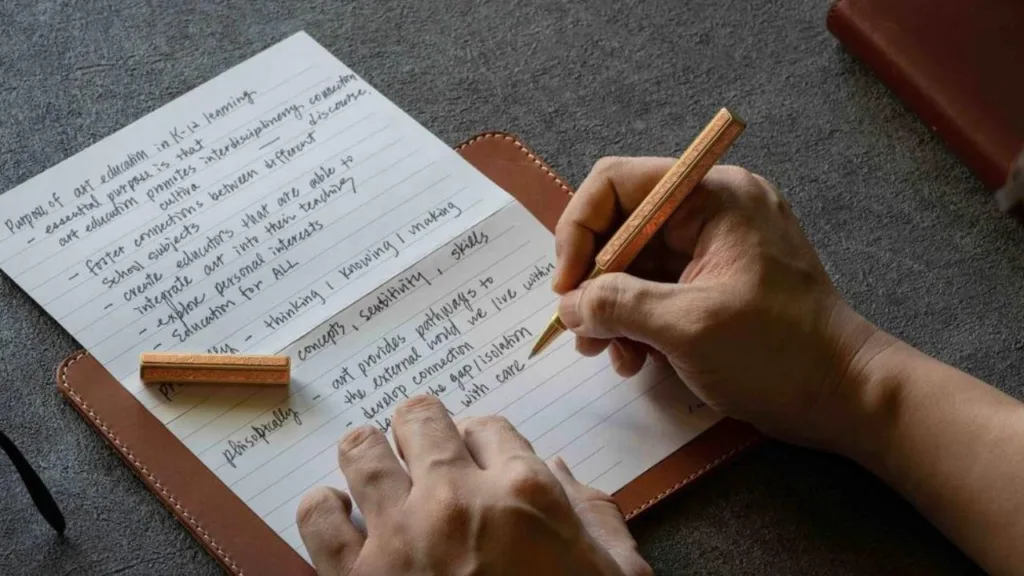 Purpose of art education in K-12 learning
- essential purpose is that
art education promotes interdisciplinary connection
cultiva discourse
- foster connections between different
school subjects
- create educators that are able to
integrate art into their teaching
- explore personal interests
Education for ALL
- thinking / knowing / making
concepts, sensitivity, skills
philosophically - art provides pathways to
the external world we live within
develop connection
he gap / isolation
with care